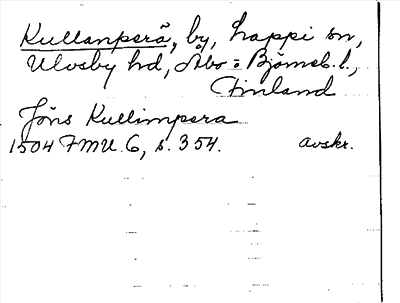 Kullanperä, by, Lappi sn,
Ulvsby hd, Åbo = Björneb. l.,
Finland
Jöns Kullimpera
1504 FMU 6, s. 354. avskr.